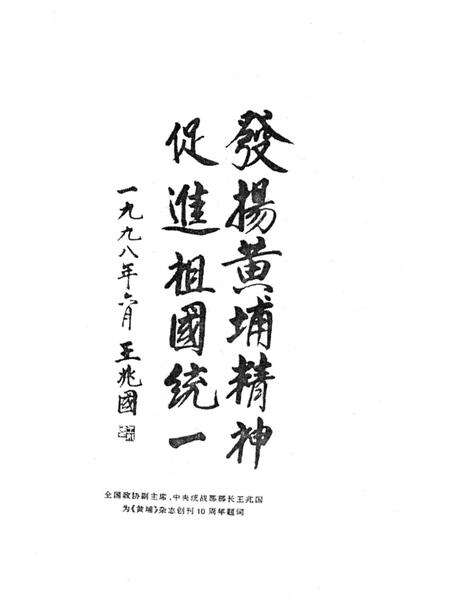 發揚黄埔精神
促進祖國統一
一九九八年六月 王兆國
全国政协副主席、中央统战部部长王兆国
为《黄埔》杂志创刊10周年题词